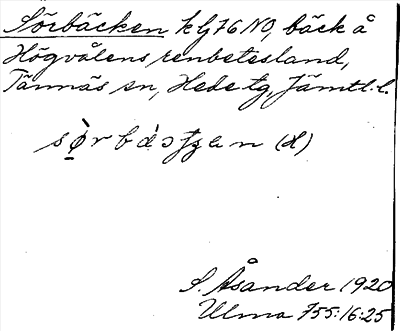 Sörbäcken k G76 NO, bäck å
Högvålens renbetesland,
Tännäs sn, Hede tg, Jämtl. l.
(d)
S. Åsander 1920
Ulma 755:16:25